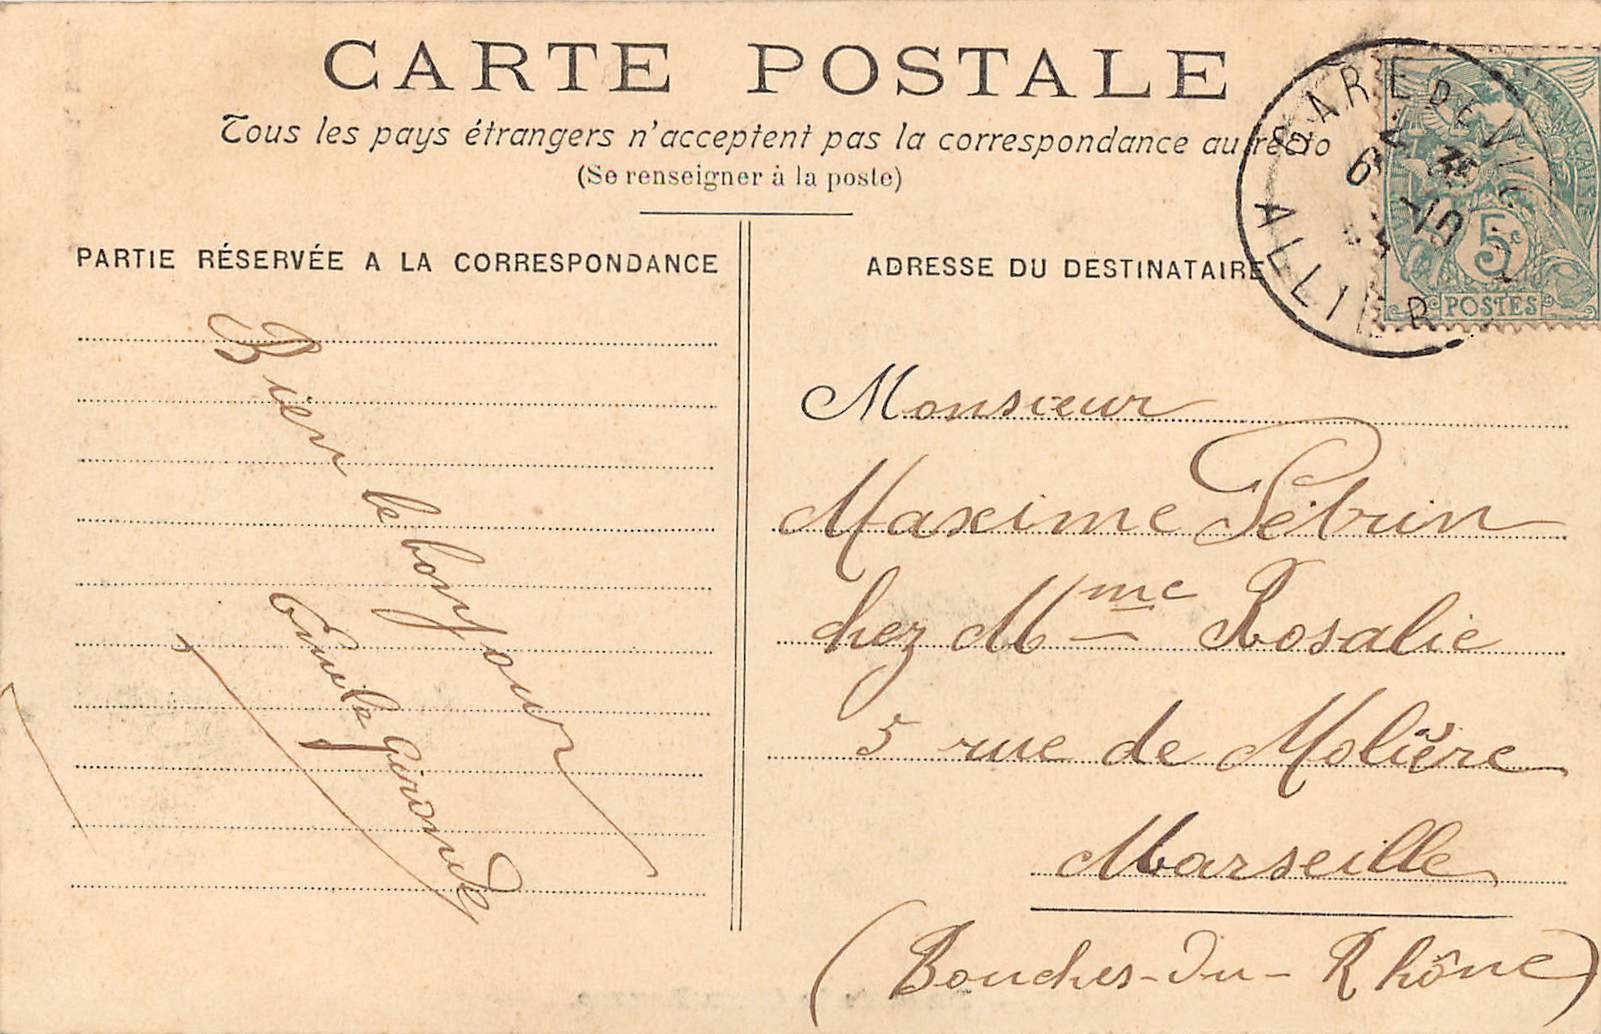 CARTE POSTALE
Tous les pays étrangers n'acceptent pas la correspondance au recto
(Se renseigner à la poste)
PARTIE RÉSERVÉE A LA CORRESPONDANCE
ADRESSE DU DESTINATAIRE
GARE DE VIC
ALLIER
5c
POSTES
Bien le bonjour
Emile
Monsieur
Maxime Pébrin
chez Mme Rosalie
5 rue de Molière
Marseille
(Bouches-du-Rhône)